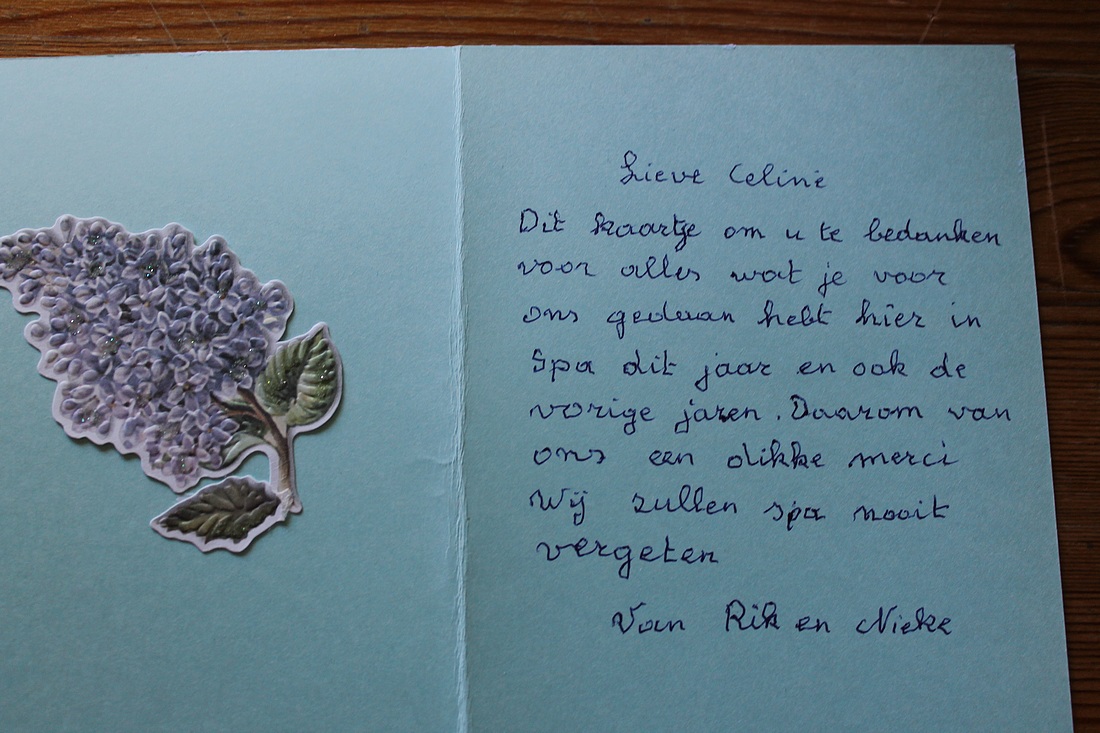 Lieve Celine
Dit kaartje om u te bedanken
voor alles wat je voor
ons gedaan hebt hier in
Spa dit jaar en ook de
vorige jaren. Daarom van
ons een dikke merci
Wij zullen spa nooit
vergeten
Van Rik en Nieke